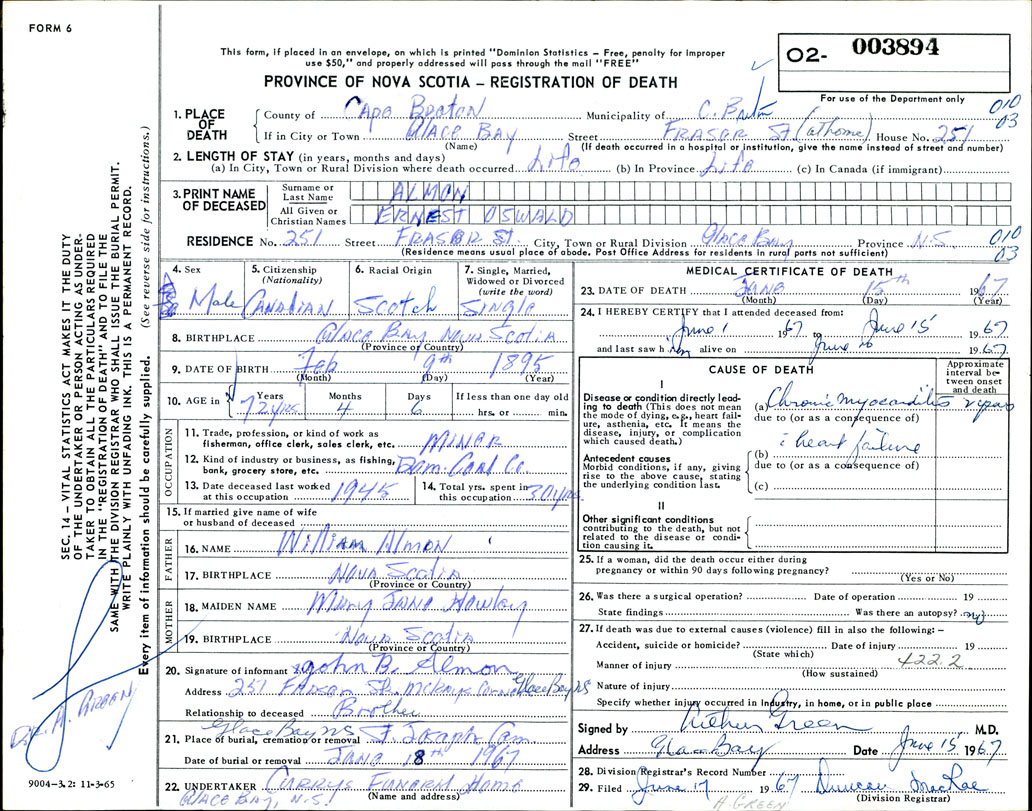 FORM 6
This form, if placed in an envelope, on which is printed "Dominion Statistics – Free, penalty for improper
use $50," and properly addressed will pass through the mail "FREE"
PROVINCE OF NOVA SCOTIA – REGISTRATION OF DEATH
O2- 003894
For use of the Department only
010
03
1. PLACE OF DEATH
County of Cape Breton Municipality of C. Breton
If in City or Town Glace Bay Street Fraser St (at home) House No. 251
(Name) (If death occurred in a hospital or institution, give the name instead of street and number)
2. LENGTH OF STAY (in years, months and days)
(a) In City, Town or Rural Division where death occurred Life (b) In Province Life (c) In Canada (if immigrant)
3. PRINT NAME OF DECEASED
Surname or Last Name ALMON
All Given or Christian Names ERNEST OSWALD
RESIDENCE No. 251 Street FRASER ST City, Town or Rural Division Glace Bay Province N.S.
(Residence means usual place of abode. Post Office Address for residents in rural parts not sufficient)
010
03
4. Sex
Male
5. Citizenship
(Nationality)
Canadian
6. Racial Origin
Scotch
7. Single, Married,
Widowed or Divorced
(write the word)
Single
8. BIRTHPLACE Glace Bay Nova Scotia
(Province or Country)
9. DATE OF BIRTH Feb 9th 1895
(Month) (Day) (Year)
10. AGE in
Years Months Days If less than one day old
72 yrs 4 6 hrs. or min.
OCCUPATION
11. Trade, profession, or kind of work as
fisherman, office clerk, sales clerk, etc. Miner
12. Kind of industry or business, as fishing,
bank, grocery store, etc. Dom. Coal Co.
13. Date deceased last worked
at this occupation 1945
14. Total yrs. spent in
this occupation 30 yrs
15. If married give name of wife
or husband of deceased
FATHER
16. NAME William Almon
17. BIRTHPLACE Nova Scotia
(Province or Country)
MOTHER
18. MAIDEN NAME Mary Jane Howley
19. BIRTHPLACE Nova Scotia
(Province or Country)
20. Signature of informant John B. Almon
Address 251 Fraser St. McKays Corner Glace Bay NS
Relationship to deceased Brother
Glace Bay NS
21. Place of burial, cremation or removal St. Joseph Cem.
Date of burial or removal June 18th 1967
22. UNDERTAKER Currys Funeral Home
Glace Bay, N.S. (Name and address)
MEDICAL CERTIFICATE OF DEATH
23. DATE OF DEATH June 15th 1967
(Month) (Day) (Year)
24. I HEREBY CERTIFY that I attended deceased from:
June 1 1967 to June 15 1967
and last saw him alive on June 1967
CAUSE OF DEATH
Approximate interval between onset and death
I
Disease or condition directly leading to death (This does not mean the mode of dying, e.g., heart failure, asthenia, etc. It means the disease, injury, or complication which caused death.)
(a) Chronic myocarditis years
due to (or as a consequence of)
c heart failure
Antecedent causes
Morbid conditions, if any, giving rise to the above cause, stating the underlying condition last.
(b)
due to (or as a consequence of)
(c)
II
Other significant conditions
contributing to the death, but not
related to the disease or condition causing it.
25. If a woman, did the death occur either during
pregnancy or within 90 days following pregnancy?
(Yes or No)
26. Was there a surgical operation? Date of operation 19
State findings Was there an autopsy? no
27. If death was due to external causes (violence) fill in also the following: –
Accident, suicide or homicide? Date of injury 19
(State which) 4222
Manner of injury
(How sustained)
Nature of injury
Specify whether injury occurred in Industry, in home, or in public place
Signed by Arthur Green M.D.
Address Glace Bay Date June 15 1967
28. Division Registrar's Record Number
29. Filed June 17 1967 Duncan MacRae
(Division Registrar)
A GREEN
SEC. 14 – VITAL STATISTICS ACT MAKES IT THE DUTY
OF THE UNDERTAKER OR PERSON ACTING AS UNDER-
TAKER TO OBTAIN ALL THE PARTICULARS REQUIRED
IN THE "REGISTRATION OF DEATH" AND TO FILE THE
SAME WITH THE DIVISION REGISTRAR WHO SHALL ISSUE THE BURIAL PERMIT.
WRITE PLAINLY WITH UNFADING INK. THIS IS A PERMANENT RECORD.
Every item of information should be carefully supplied. (See reverse side for instructions.)
Dr. A. Green
9004-3.2: 11-3-65